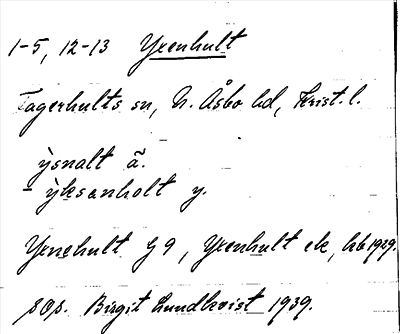 1-5, 12-13 Yxenhult
Fagerhults sn, N. Åsbo hd, Krist. l.
ỳsnalt ä.
ỳksanholt y.
Yxnehult g 9, Yxenhult ek, kb 1929.
SOs. Birgit Lundkvist 1939.